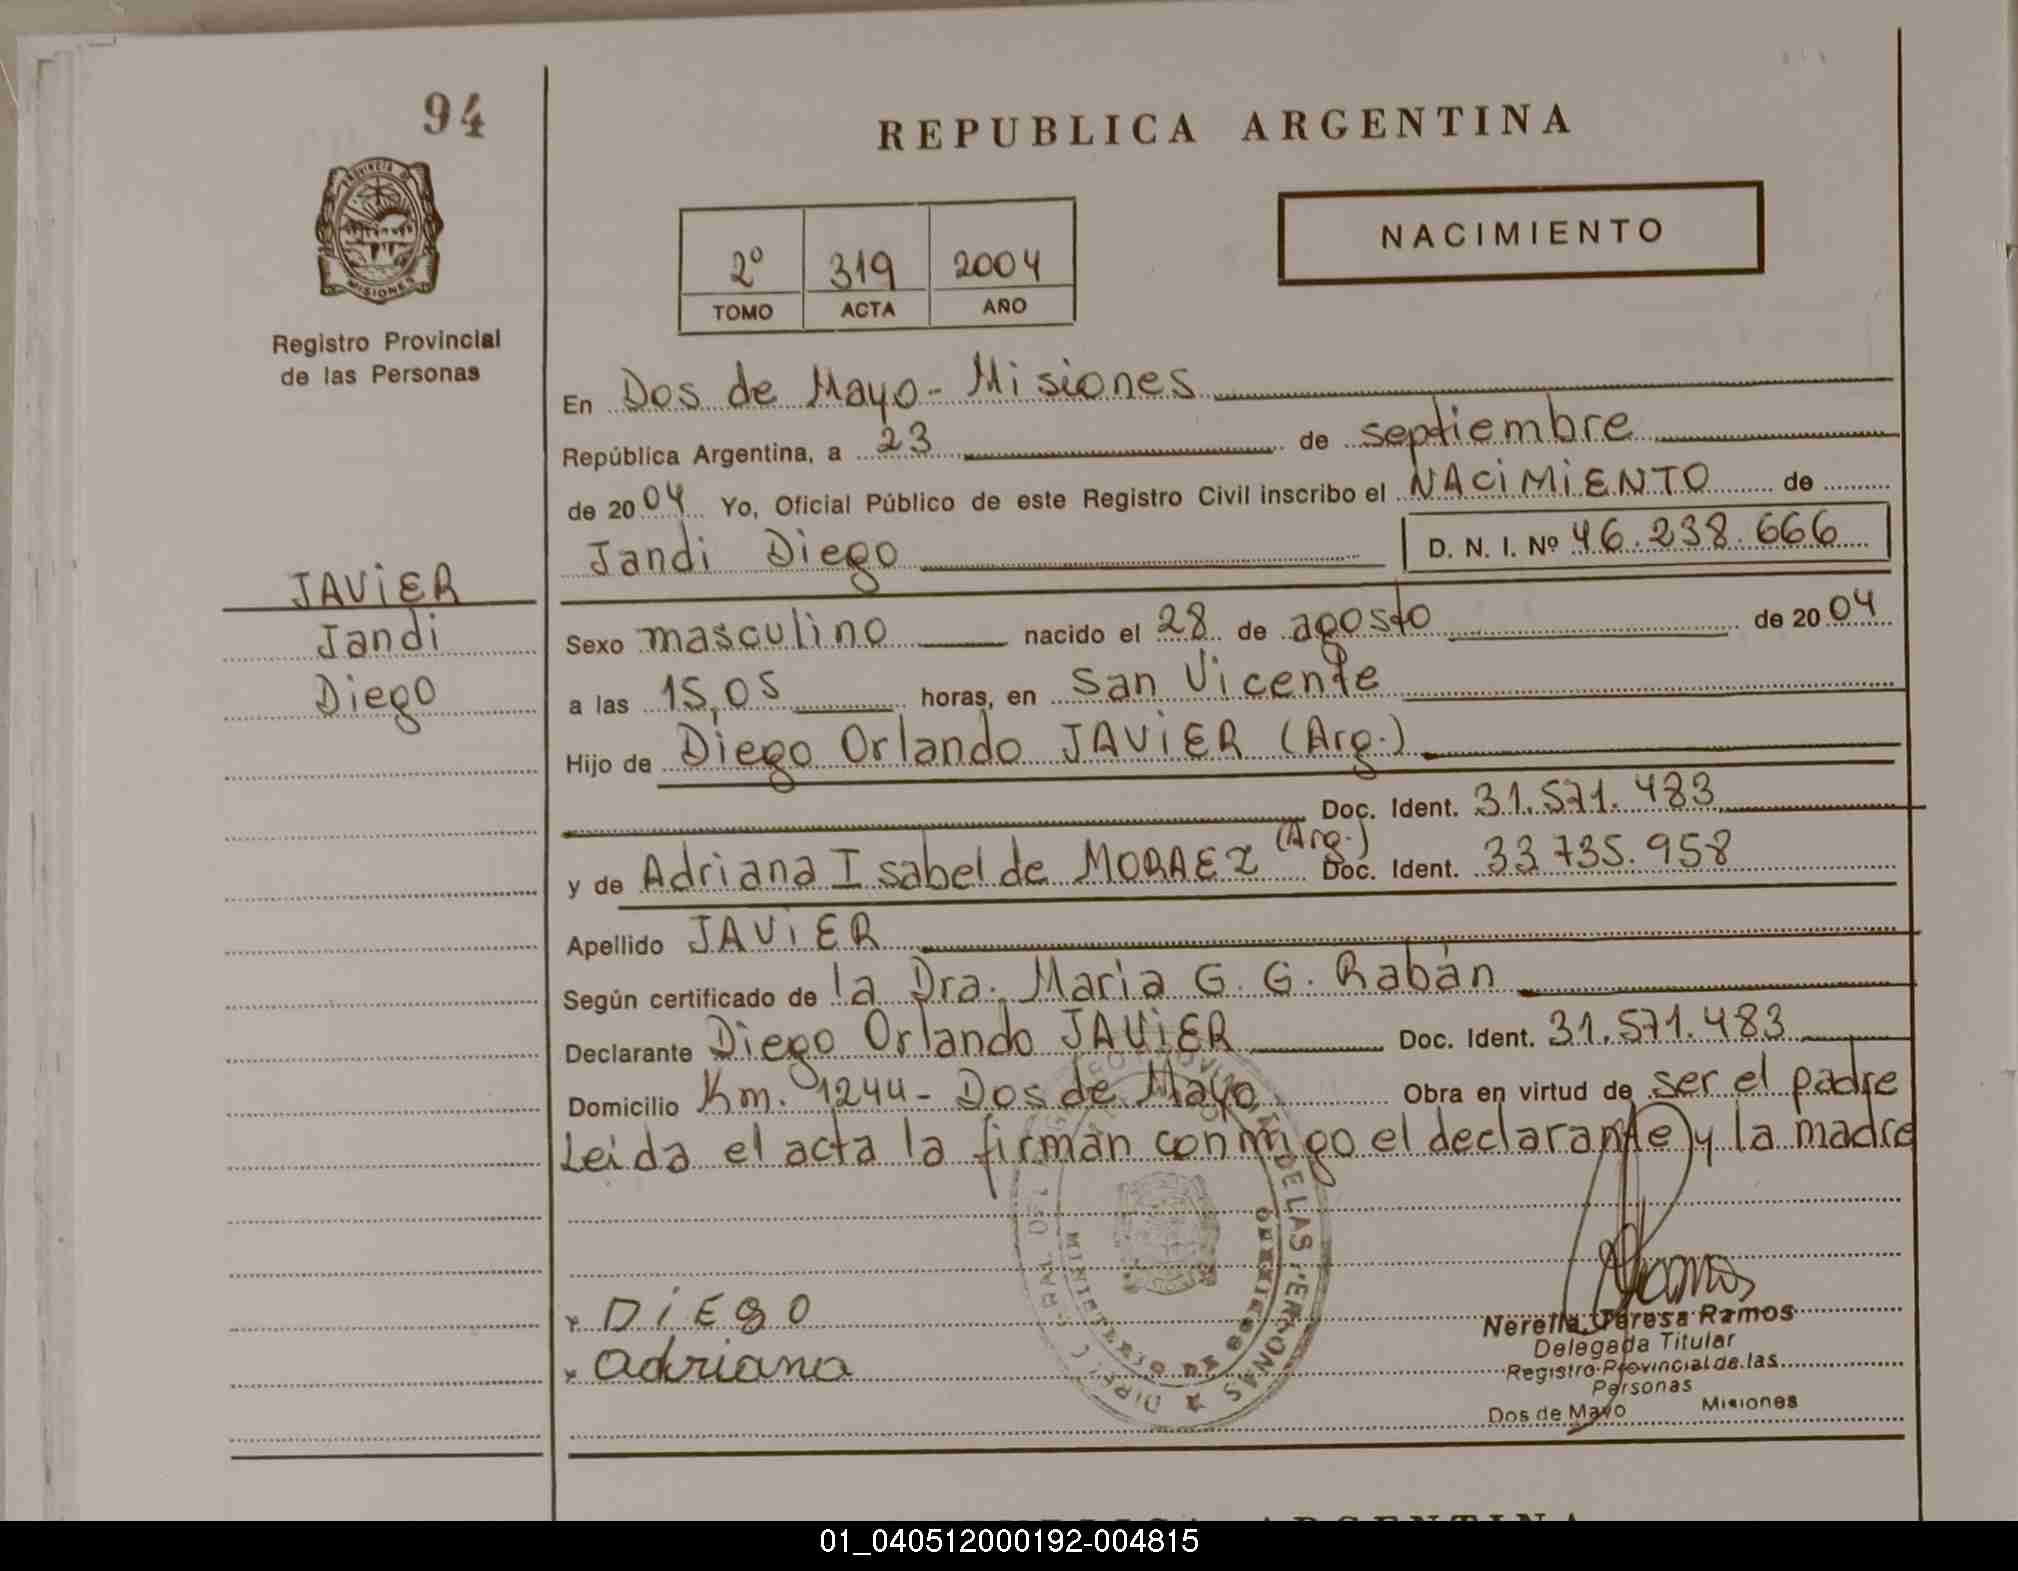 94
REPUBLICA ARGENTINA
PROVINCIA DE
MISIONES
Registro Provincial
de las Personas
2º 319 2004
TOMO ACTA AÑO
NACIMIENTO
En Dos de Mayo - Misiones
República Argentina, a 23 de septiembre
de 2004 Yo, Oficial Público de este Registro Civil inscribo el NACIMIENTO de
Jandi Diego D. N. I. Nº 46.238.666
JAVIER
Jandi
Diego
Sexo masculino nacido el 28 de agosto de 2004
a las 15,05 horas, en San Vicente
Hijo de Diego Orlando JAVIER (Arg.)
Doc. Ident. 31.571.483
y de Adriana Isabel de MORAEZ (Arg.) Doc. Ident. 33.735.958
Apellido JAVIER
Según certificado de la Dra. Maria G. G. Rabán
Declarante Diego Orlando JAVIER Doc. Ident. 31.571.483
Domicilio Km. 1244 - Dos de Mayo Obra en virtud de ser el padre
Leida el acta la firman conmigo el declarante y la madre
DE LAS PERSONAS
MINISTERIO DE GOBIERNO
x DIEGO
x adriana
Ramos
Nerella Teresa Ramos
Delegada Titular
Registro Provincial de las
Personas
Dos de Mayo Misiones
01_040512000192-004815